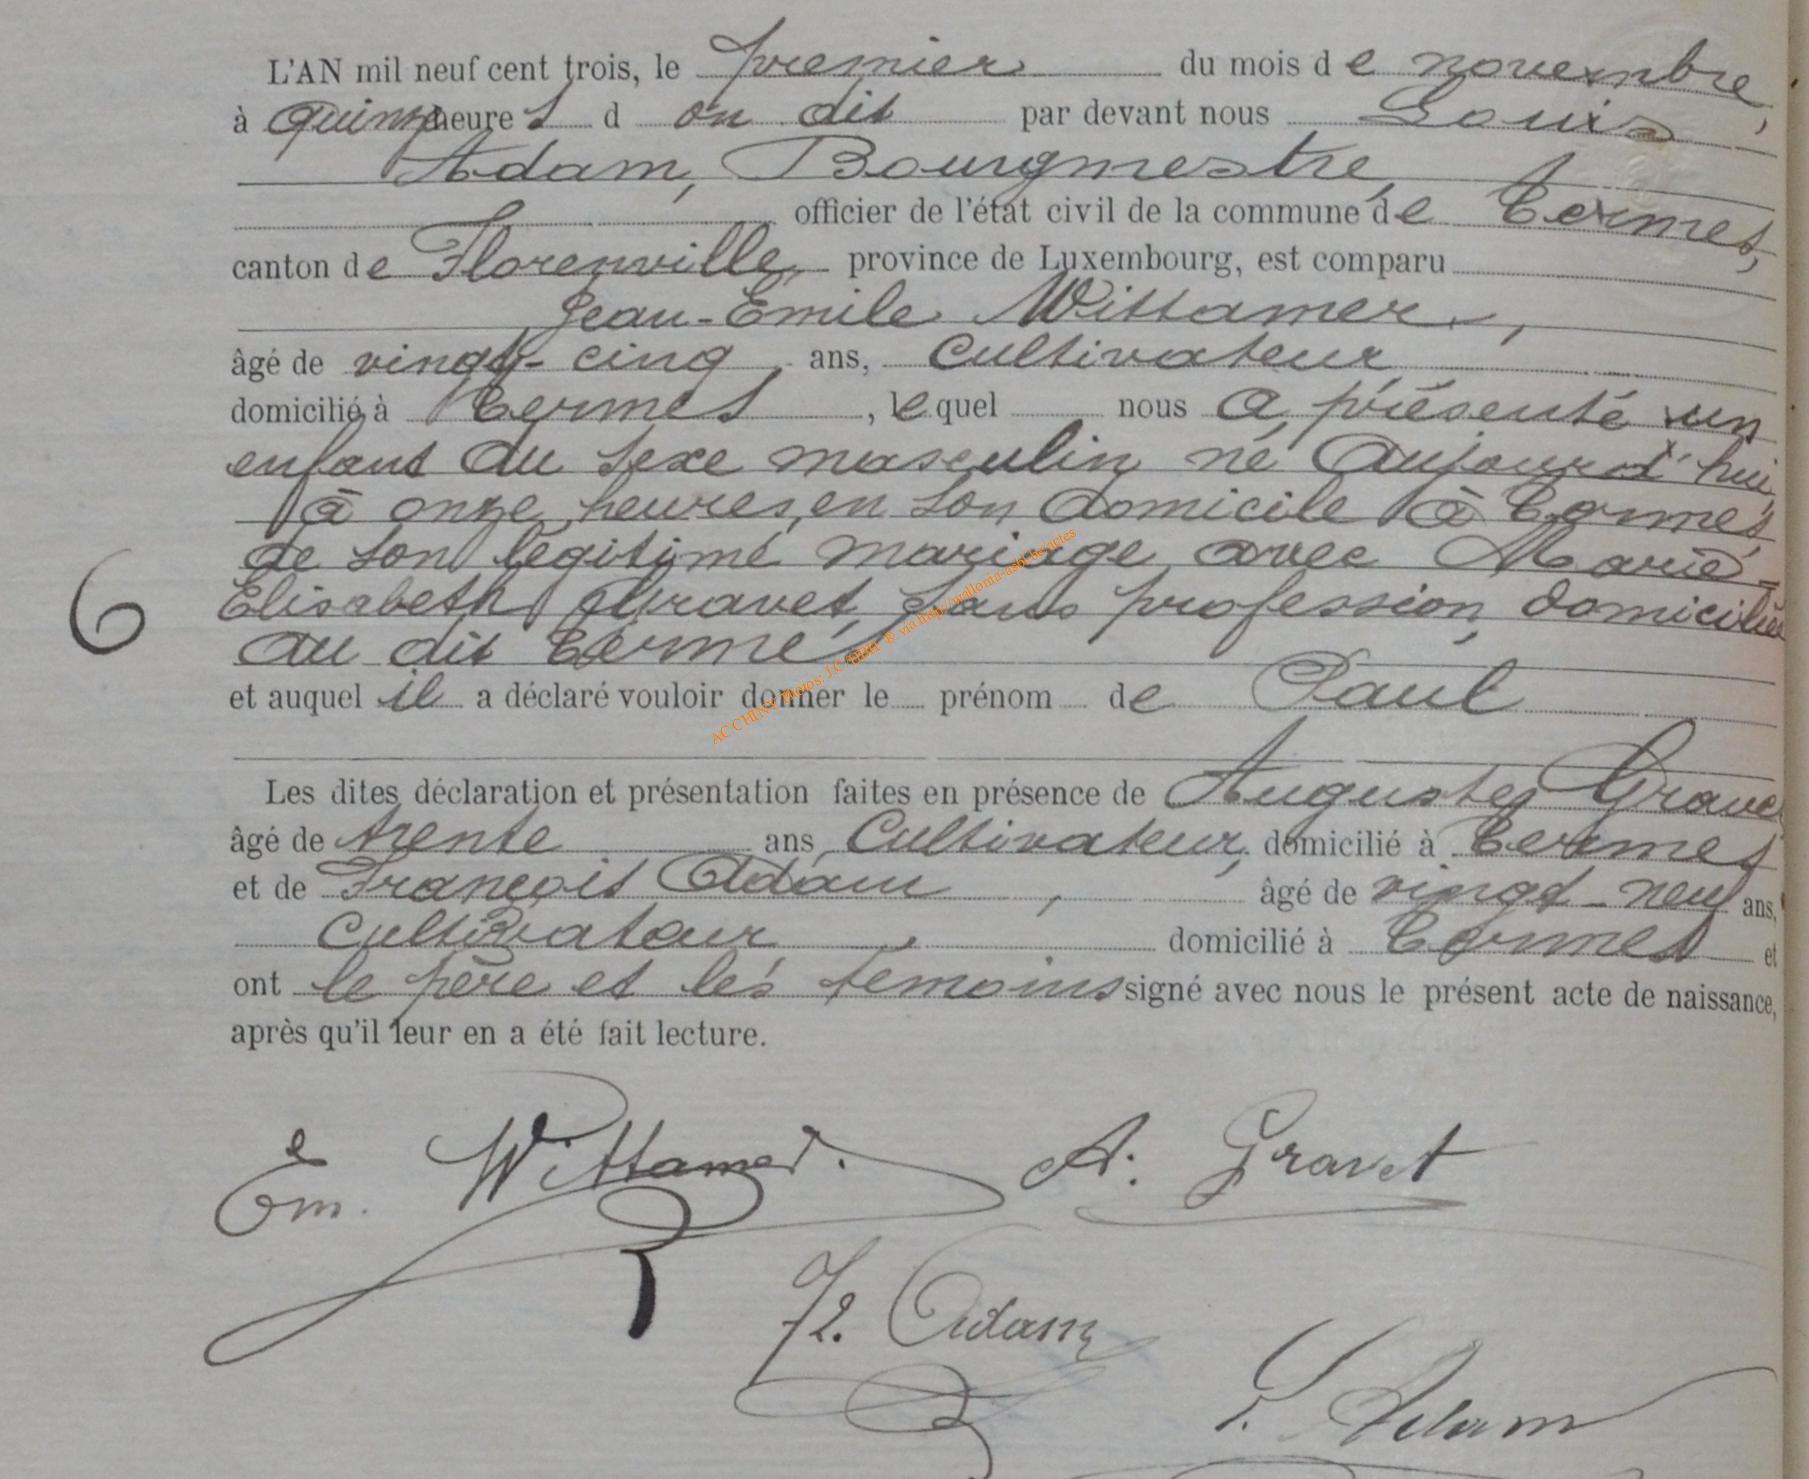 L'AN mil neuf cent trois, le premier du mois de novembre,
à quinze heures d on dit par devant nous Louis
Adam, Bourgmestre,
officier de l'état civil de la commune de Termes,
canton de Florenville, province de Luxembourg, est comparu
Jean-Emile Wittamer,
âgé de vingt-cinq ans, cultivateur,
domicilié à Termes, lequel nous a présenté un
enfant du sexe masculin né aujourd'hui,
à onze heures, en son domicile à Termes,
de son légitime mariage avec Marie-
Elisabeth Gravet, sans profession, domiciliée
au dit Termes
6
et auquel il a déclaré vouloir donner le prénom de Paul
Les dites déclaration et présentation faites en présence de Auguste Gravet
âgé de trente ans, Cultivateur, domicilié à Termes
et de François Adam, âgé de vingt-neuf ans,
Cultivateur, domicilié à Termes et
ont le père et les témoins signé avec nous le présent acte de naissance,
après qu'il leur en a été fait lecture.
Em. Wittamer. A. Gravet
Adam
L. Adam